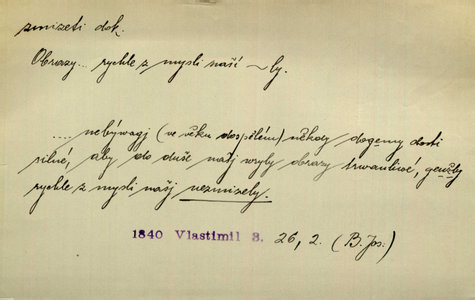 zmizeti dok.
Obrazy... rychle z mysli naší ~ly.
.... nebýwagj (ve věku dospělém) někdy dogemy dosti
silné, aby do duše našj wryly obrazy trwanliwé, genžby
rychle z mysli našj nezmizely.
1840 Vlastimil 3. 26, 2. (B. Jos.)